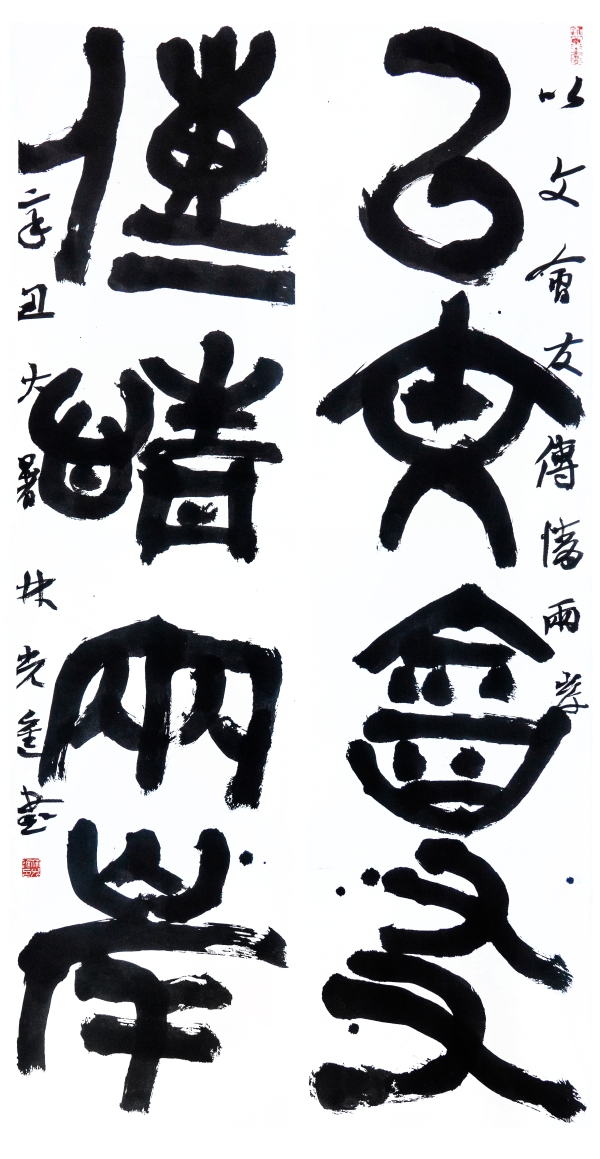 以文會友傳情兩岸
以文會友
傳情兩岸
辛丑大暑 林 書